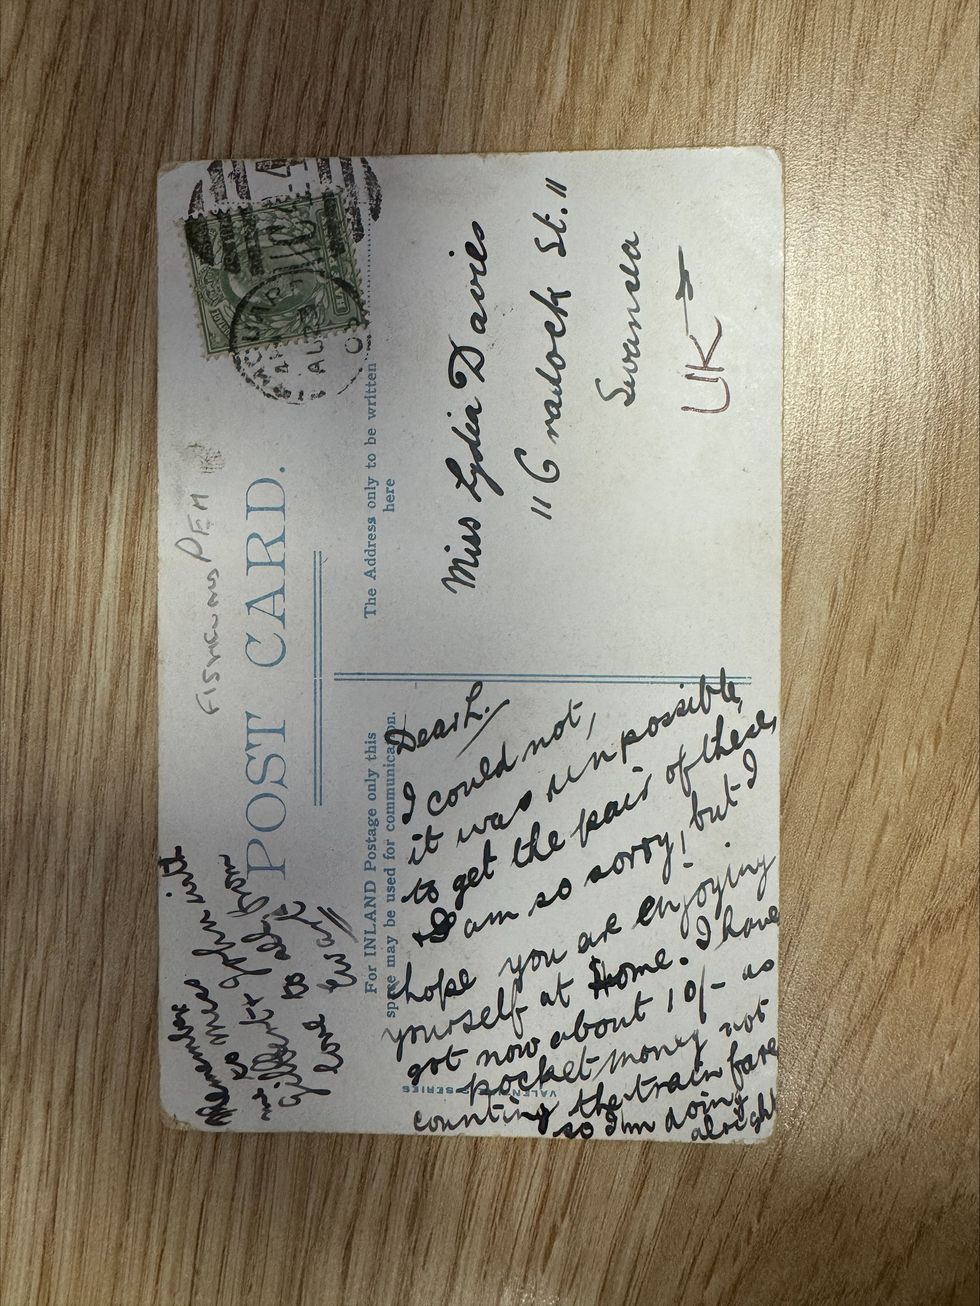 FISHGUARD PEM
POST CARD.
For INLAND Postage only this
space may be used for communication.
The Address only to be written
here
Remember
us Miss
John with
Gilbert & all from
to all
love
Evan
Dear L.
I could not,
it was unpossible,
to get the pair of these,
I am so sorry, but I
hope you are enjoying
yourself at Home. I have
got now about 10/- as
pocket money not
counting the train fare
so I'm doing
alright
Miss Lydia Davies
"Cradock St."
Swansea
UK
VALENTINE'S SERIES